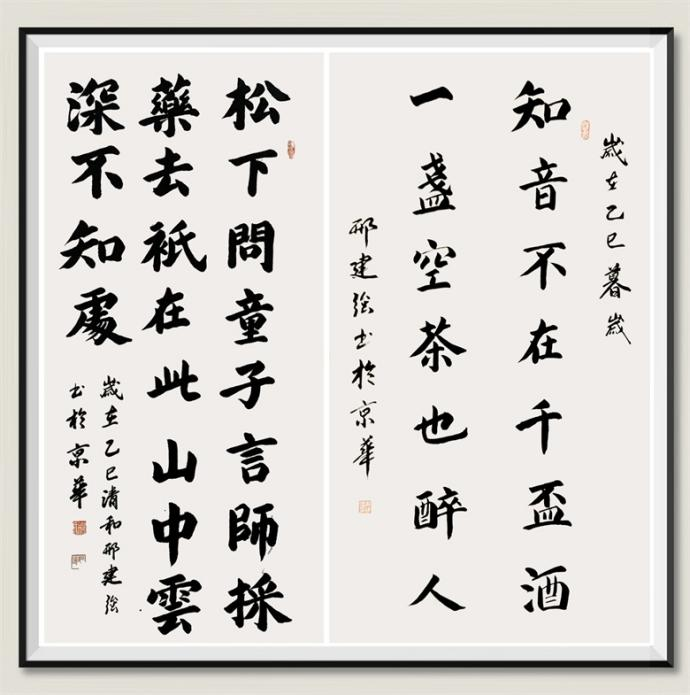 歲在乙巳暮歲
知音不在千盃酒
一盞空茶也醉人
邢建繪书於京華
松下問童子言師採
藥去衹在此山中雲
深不知處
歲在乙巳清和邢建繪
书於京華